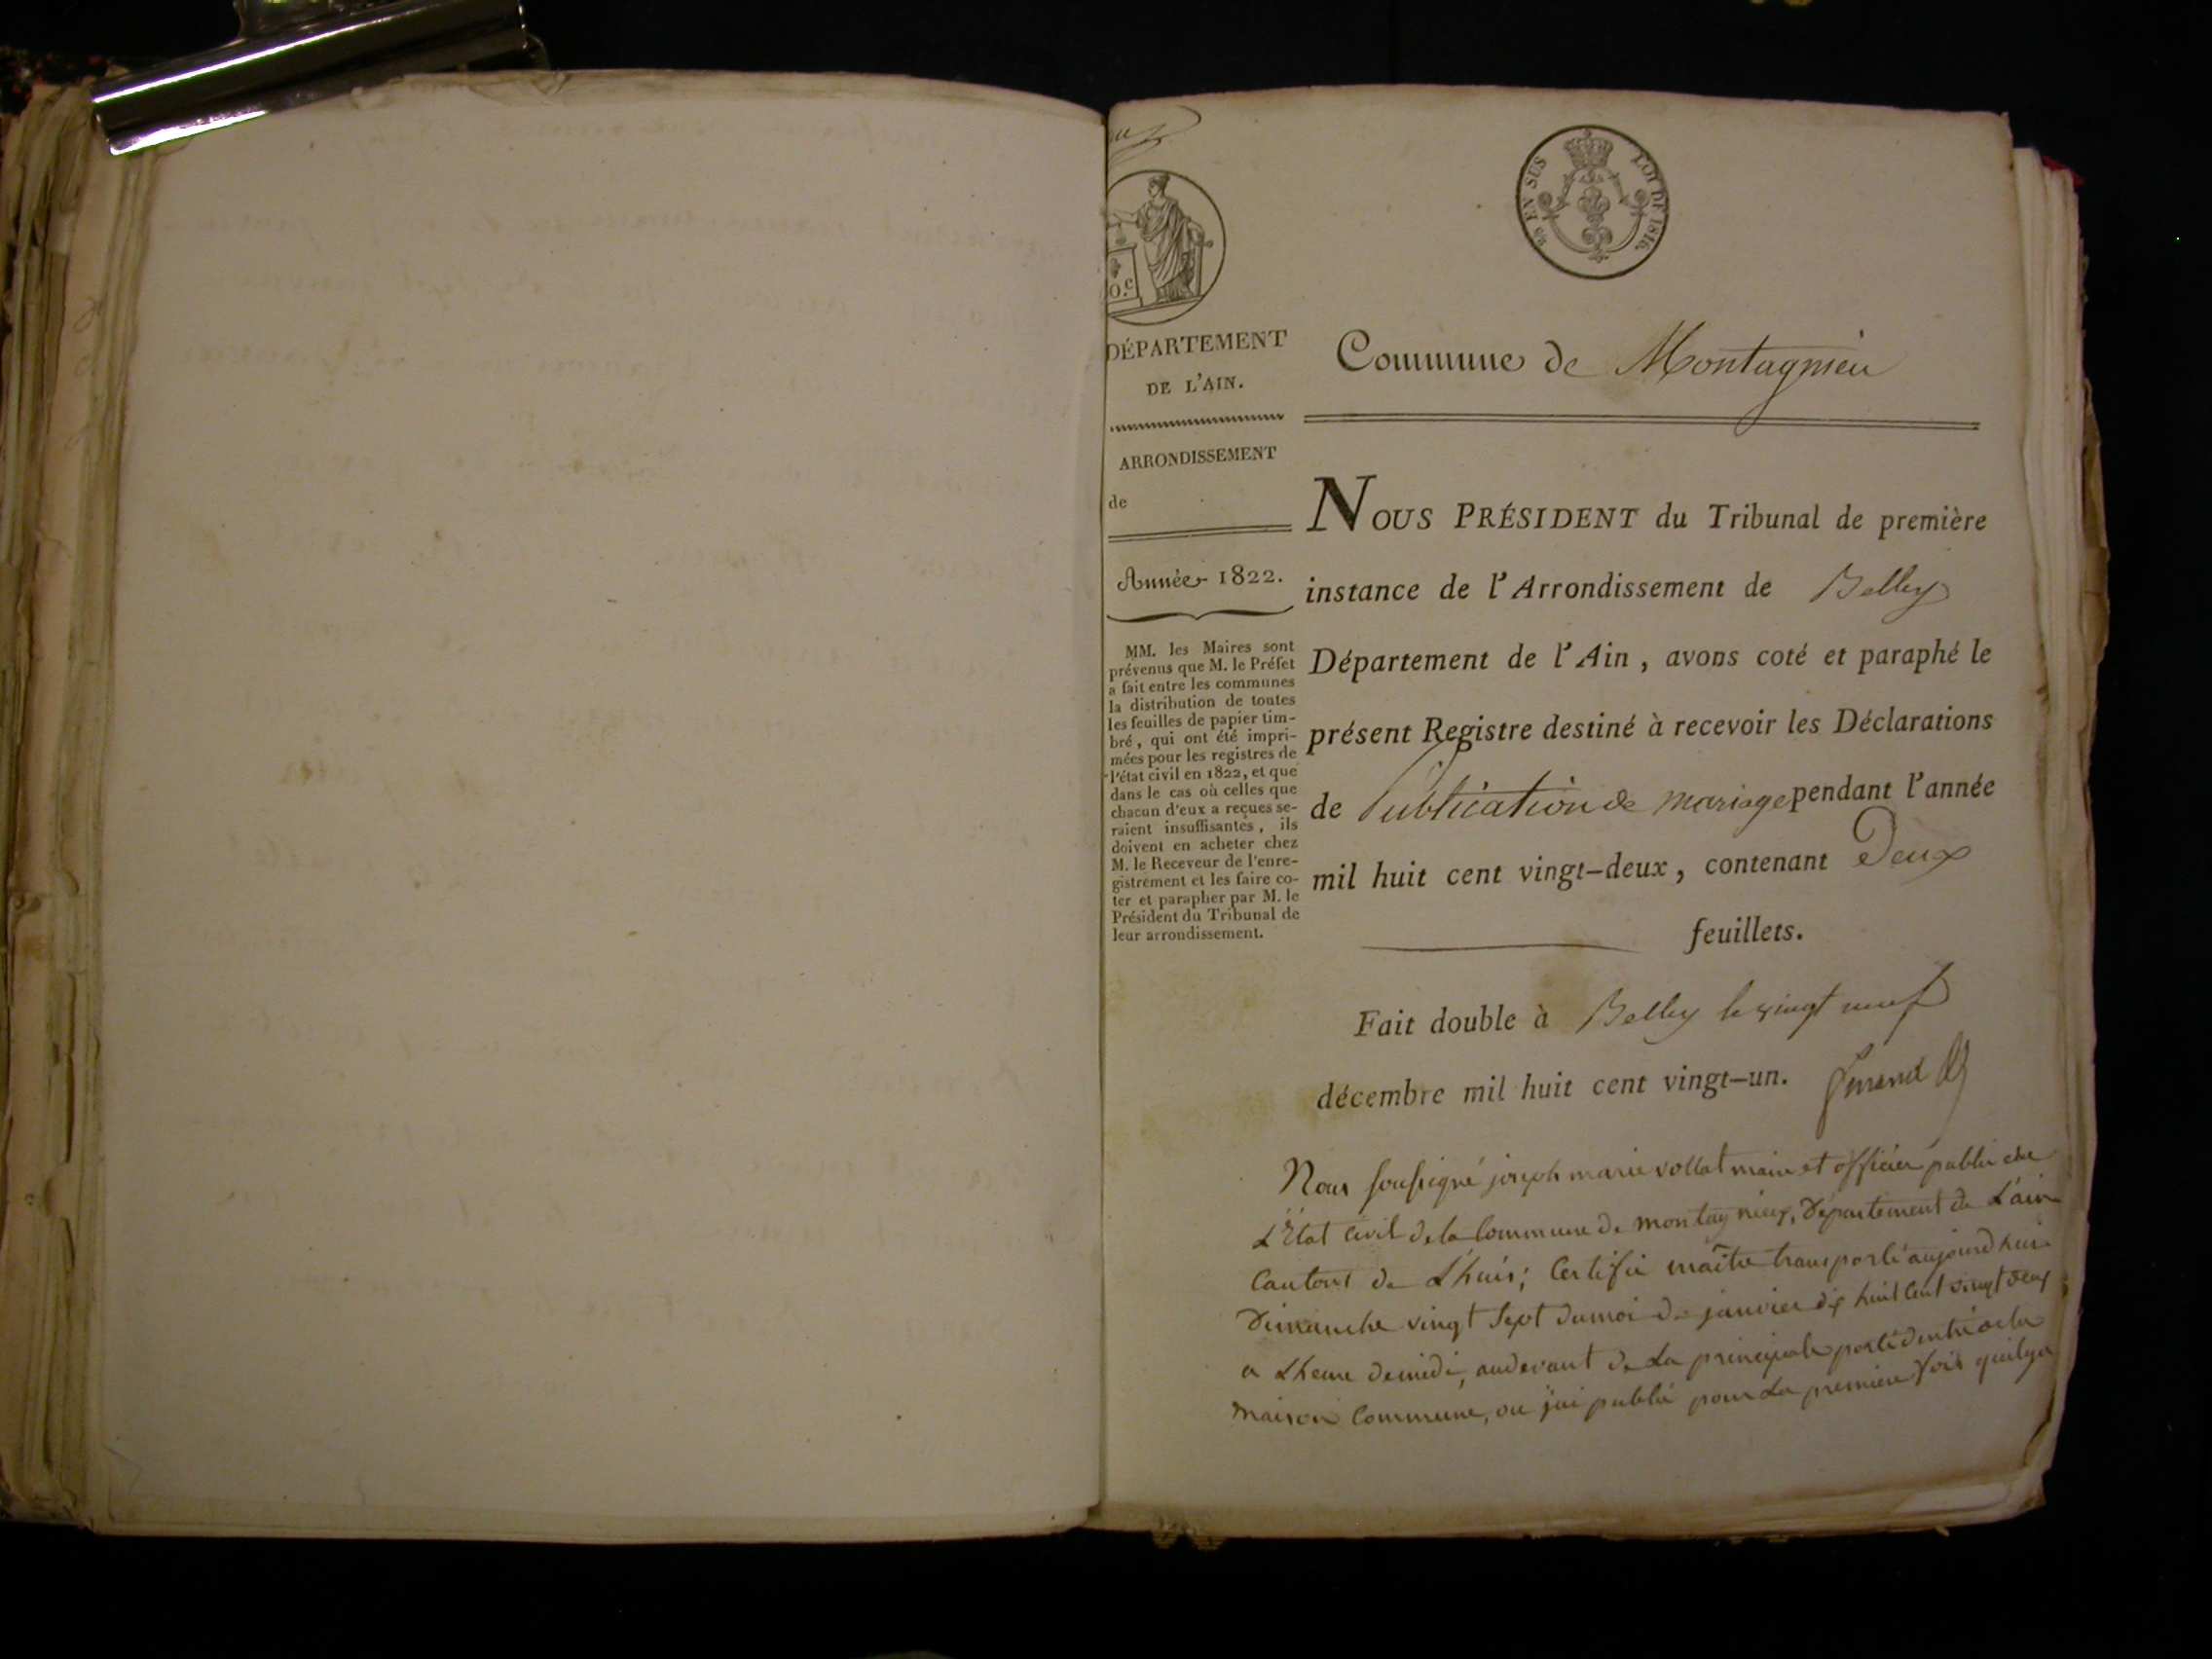 25 EN SUS
LOI DE 1816.
0.c
DÉPARTEMENT
DE L'AIN.
ARRONDISSEMENT
de
Année 1822.
MM. les Maires sont
prévenus que M. le Préfet
a fait entre les communes
la distribution de toutes
les feuilles de papier tim-
bré, qui ont été impri-
mées pour les registres de
l'état civil en 1822, et que
dans le cas où celles que
chacun d'eux a reçues se-
raient insuffisantes, ils
doivent en acheter chez
M. le Receveur de l'enre-
gistrement et les faire co-
ter et parapher par M. le
Président du Tribunal de
leur arrondissement.
Commune de Montagnieu
NOUS PRÉSIDENT du Tribunal de première
instance de l'Arrondissement de Belley
Département de l'Ain, avons coté et paraphé le
présent Registre destiné à recevoir les Déclarations
de Publication de mariage pendant l'année
mil huit cent vingt-deux, contenant Deux
feuillets.
Fait double à Belley le vingt neuf
décembre mil huit cent vingt-un.
Nous soussigné joseph marie vollat maire et officier public de
L'Etat Civil de la Commune de montagnieu, Département de L'ain
Canton de Lhuis; Certifie maitre transporté aujourdhui
Dimanche vingt Sept du moi de janvier dix huit Cent vingt deux
a Lheure de midi, au devant de La principale porte dentré de la
maison Commune, ou jai publié pour La premiere fois quilya